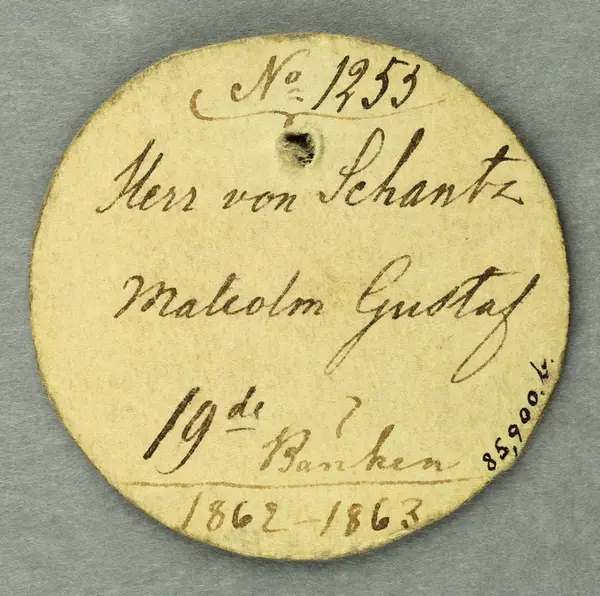 No 1253
Herr von Schantz
Malcolm Gustaf
19de ?
Banken
1862-1863
85,900. b.